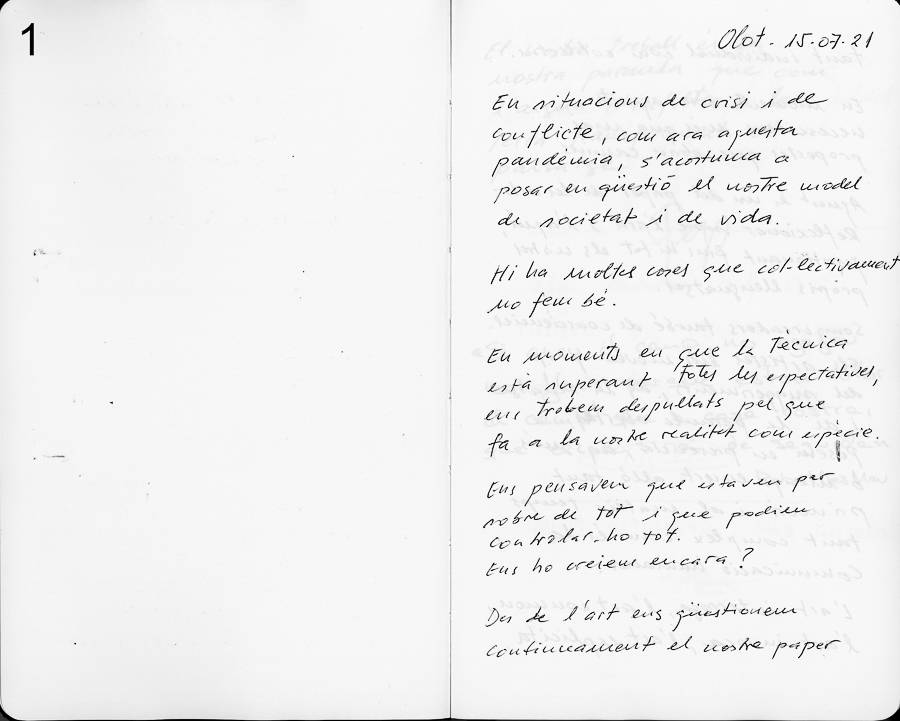 1
Olot - 15.07.21
En situacions de crisi i de
conflicte, com ara aquesta
pandèmia, s'acostuma a
posar en qüestió el nostre model
de societat i de vida.
Hi ha moltes coses que col·lectivament
no fem bé.
En moments en que la Tècnica
està superant Totes les espectatives,
ens trobem despullats pel que
fa a la nostre realitat com espècie.
Ens pensavem que estavem per
sobre de tot i que podiem
controlar-ho tot.
Ens ho creiem encara?
Des de l'art ens qüestionem
continuament el nostre paper